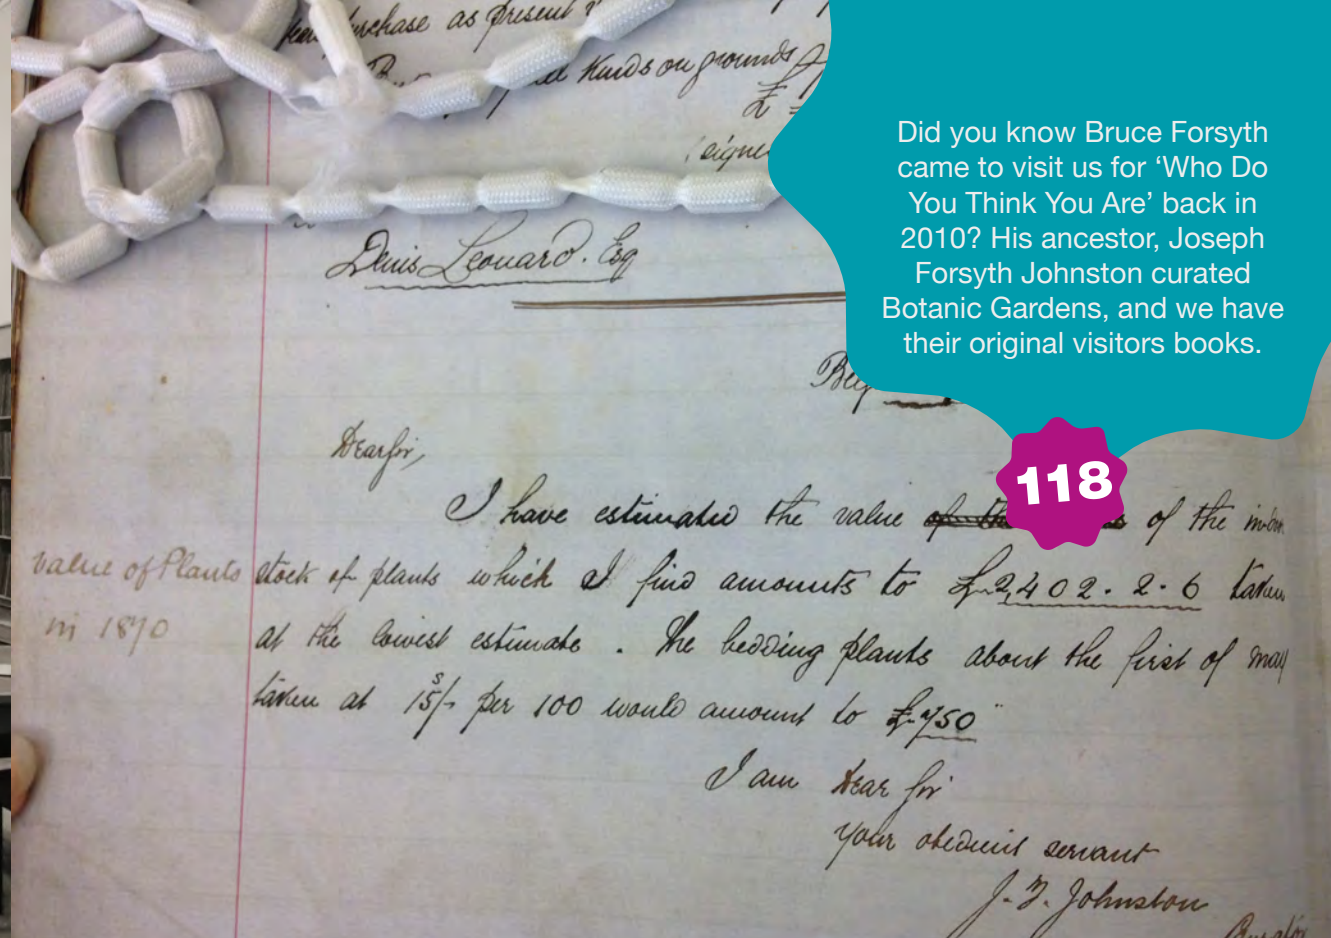 purchase as present
Kinds on grounds
£
(signe
Denis Leonard. Esq
Did you know Bruce Forsyth
came to visit us for ‘Who Do
You Think You Are’ back in
2010? His ancestor, Joseph
Forsyth Johnston curated
Botanic Gardens, and we have
their original visitors books.
118
Dear Sir,
I have estimated the value of the
value of Plants
in 1870
stock of plants which I find amounts to £2,402. 2. 6 taken
at the lowest estimate. The bedding plants about the first of may
taken at 15/- per 100 would amount to £750
I am Dear Sir
Your obedient servant
J. F. Johnston
Curator